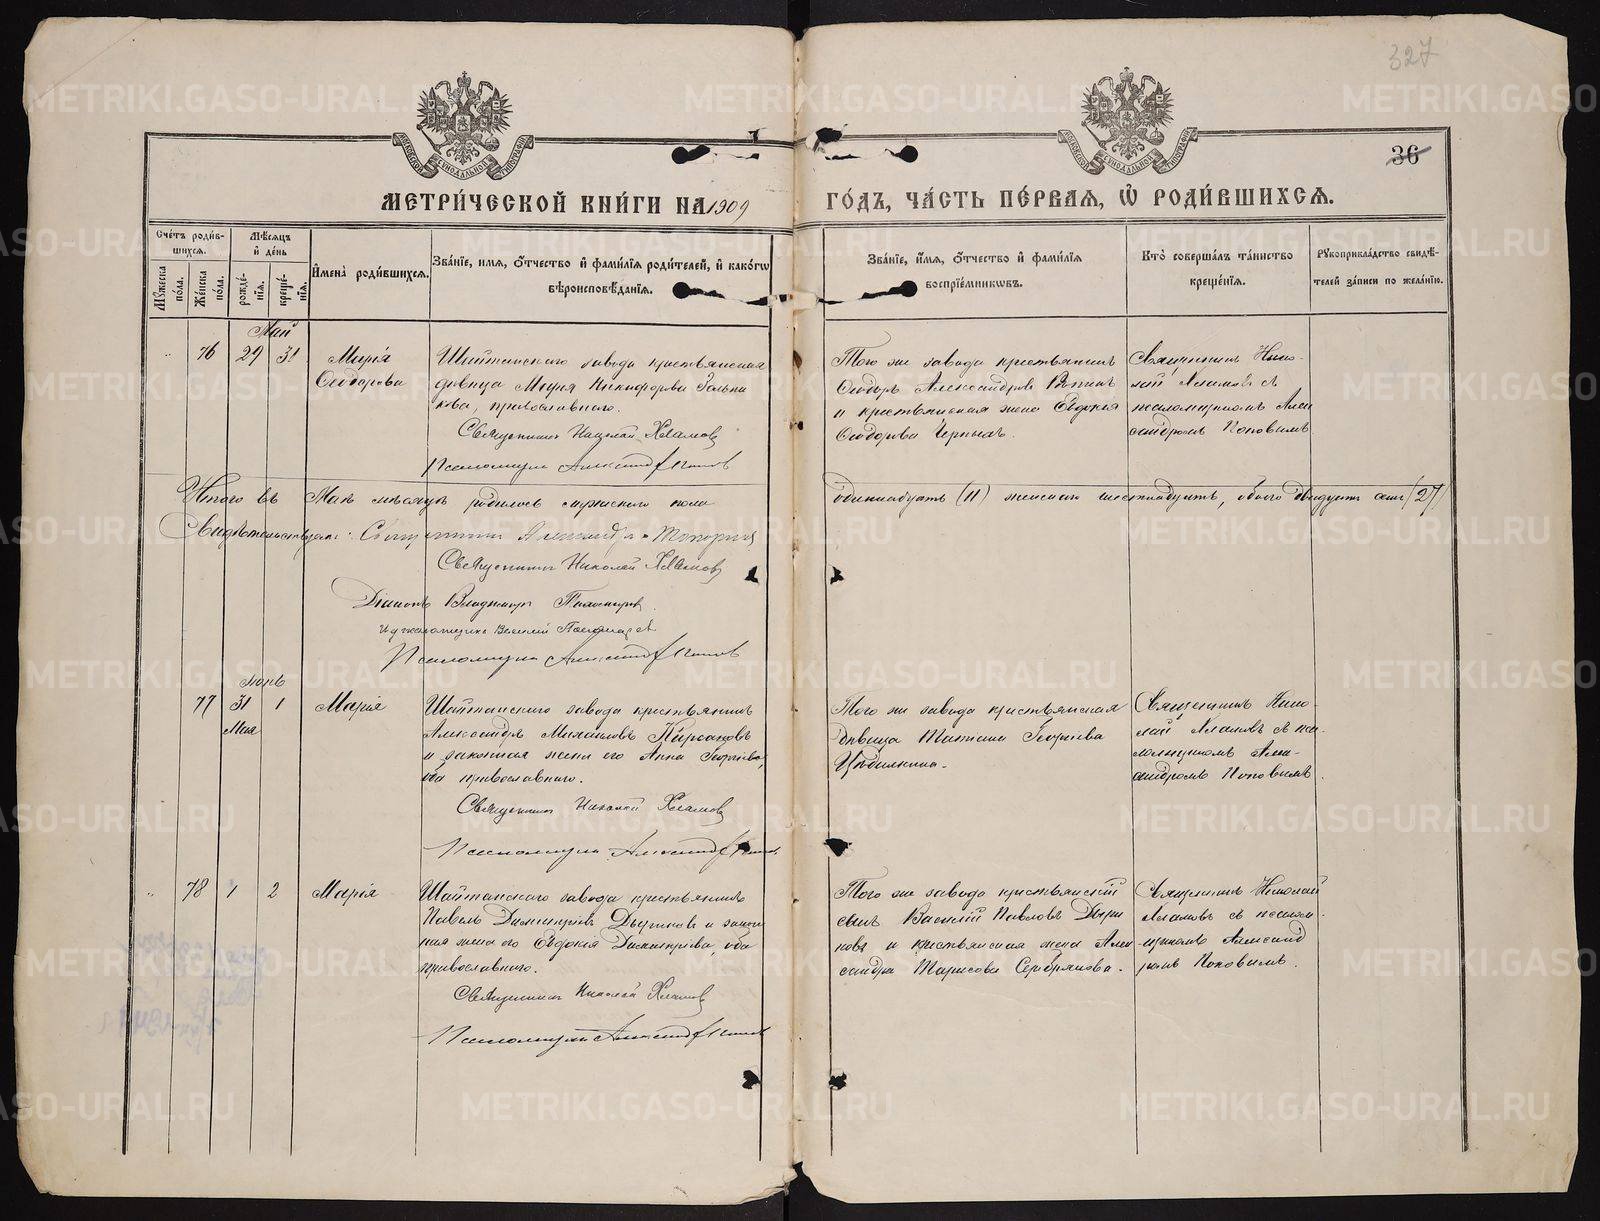 327
36
МЕТРИ́ЧЕСКОЙ КНИ́ГИ НА 1909 ГО́ДЪ, ЧА́СТЬ ПЕ́РВАЯ, Ѡ РОДИ́ВШИХСЯ.
Сче́тъ роди́вшихся.
Му́жеска по́ла.
Же́нска по́ла.
Мѣ́сяцъ и де́нь
рожде́нія.
креще́нія.
Имена̀ роди́вшихся.
Зва́ніе, имя, о́тчество и фами́лія роди́телей, и како́гѡ вѣроисповѣ́данія.
Зва́ніе, и́мя, о́тчество и фами́лія воспріе́мникѡвъ.
Кто̀ соверша́лъ та́инство креще́нія.
Рукоприкла́дство свидѣ́телей за́писи по жела́нію.
Май
76 29 31
Марія
Ѳеодорова
Шайтанскаго завода крестьянская
дѣвица Марія Никифорова
православнаго.
Священникъ Николай Хламовъ
Псаломщикъ Александръ Поповъ
Того же завода крестьянинъ
Ѳеодоръ Александровъ
и крестьянская жена Евдокія
Ѳеодорова Черныхъ.
Священникъ Нико-
лай Хламовъ съ
псаломщикомъ Алек
сандромъ Поповымъ
Итого въ Маѣ мѣсяцѣ родилось мужескаго пола
одиннадцать (11) женскаго шестнадцать, обоего двадцать семь (27)
Свидѣтельствуемъ: Священникъ Александръ Топорковъ
Священникъ Николай Хламовъ
Діаконъ Владиміръ
И д псаломщика Василій Пономаревъ
Псаломщикъ Александръ Поповъ
Іюнь
77 31 1
Мая
Марія
Шайтанскаго завода крестьянинъ
Александръ Михайловъ Кирсановъ
и законная жена его Анна Георгіева,
оба православнаго.
Священникъ Николай Хламовъ
Псаломщикъ Александръ Поповъ
Того же завода крестьянская
дѣвица Татіана Георгіева
Священникъ Нико-
лай Хламовъ съ пса
ломщикомъ Алек-
сандромъ Поповымъ.
78 1 2
Марія
Шайтанскаго завода крестьянинъ
Павелъ Димитріевъ Дыриновъ и закон
ная жена его Евдокія Димитріева, оба
православнаго.
Священникъ Николай Хламовъ
Псаломщикъ Александръ Поповъ
Того же завода крестьянскій
сынъ Василій Павловъ Дыри
новъ и крестьянская жена Алек
сандра Тарасова Серебрякова.
Священникъ Николай
Хламовъ съ псалом-
щикомъ Александ
ромъ Поповымъ.
METRIKI.GASO-URAL.RU